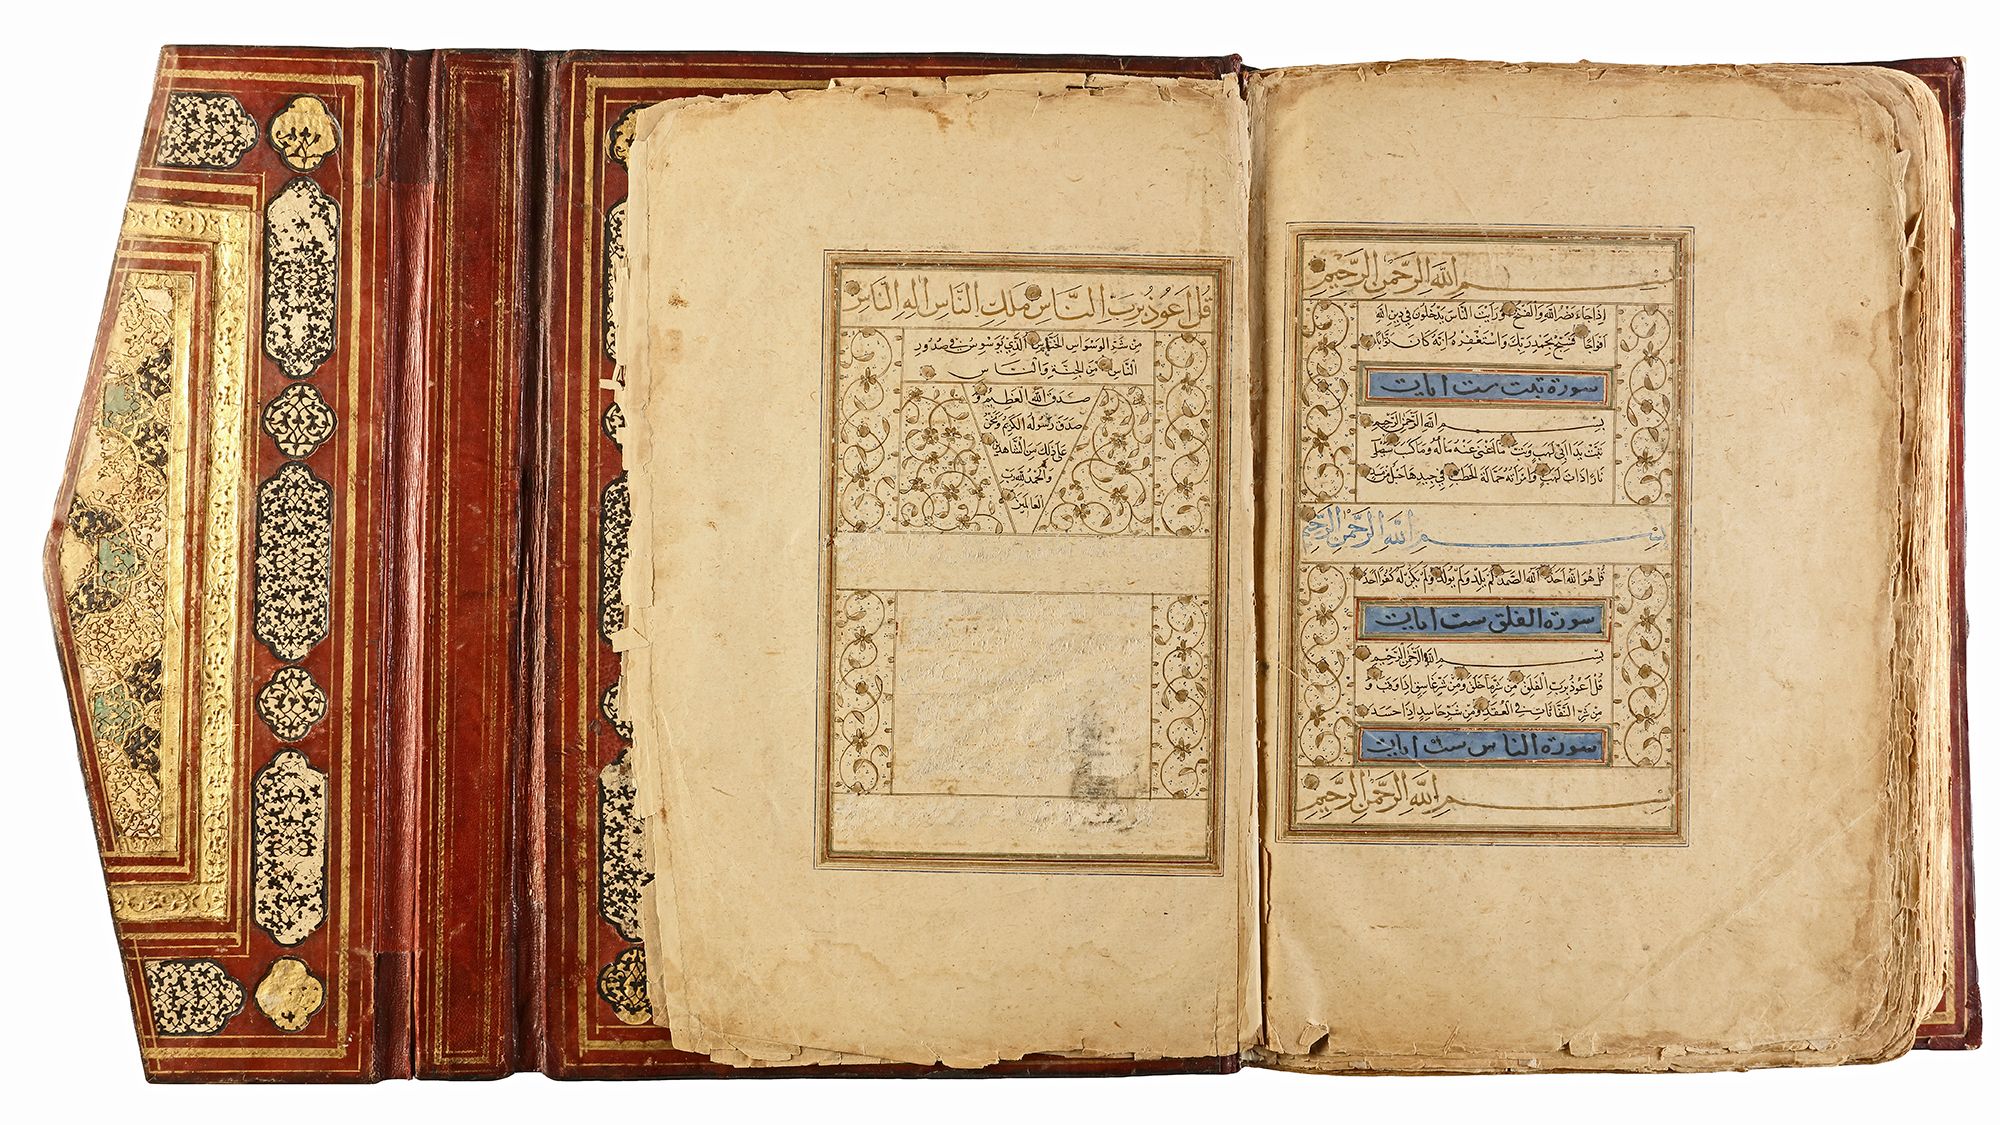 بسم الله الرحمن الرحيم
اذا جاء نصر الله والفتح ورايت الناس يدخلون في دين الله
افواجا فسبح بحمد ربك واستغفره انه كان توابا
سورة تبت ست ايات
بسم الله الرحمن الرحيم
تبت يدا ابي لهب وتب ما اغنى عنه ماله وما كسب سيصلى
نارا ذات لهب وامراته حمالة الحطب في جيدها حبل من مسد
بسم الله الرحمن الرحيم
قل هو الله احد الله الصمد لم يلد ولم يولد ولم يكن له كفوا احد
سورة الفلق ست ايات
بسم الله الرحمن الرحيم
قل اعوذ برب الفلق من شر ما خلق ومن شر غاسق اذا وقب و
من شر النفاثات في العقد ومن شر حاسد اذا حسد
سورة الناس ست ايات
بسم الله الرحمن الرحيم
قل اعوذ برب الناس ملك الناس اله الناس
من شر الوسواس الخناس الذي يوسوس في صدور
الناس من الجنة والناس
صدق الله العظيم و
صدق رسوله الكريم ونحن
على ذلك من الشاهدين
والحمد لله رب
العالمين